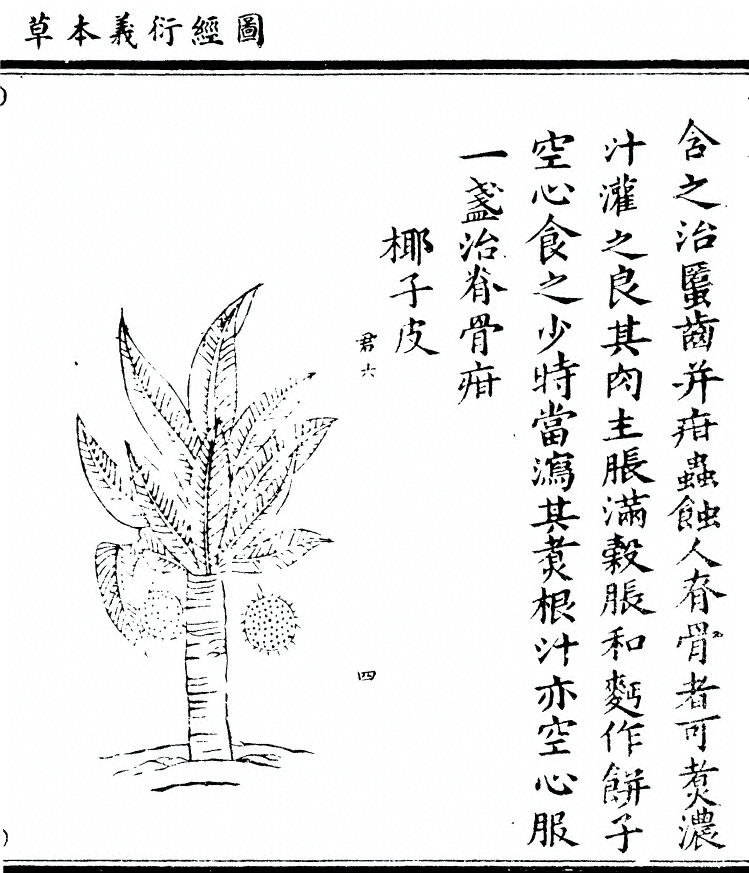 圖經衍義本草
含之治䘌齒并疳蟲蝕人脊骨者可煑濃
汁灌之良其肉主脹滿穀脹和麫作餅子
空心食之少時當瀉其煑根汁亦空心服
一盞治脊骨疳
椰子皮
君六
四